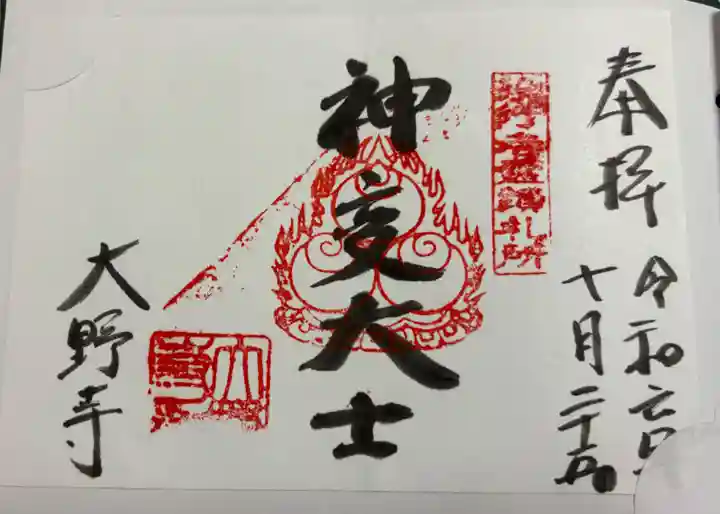 奉拝
令和六年
十月二十五日
神変大士
大野寺